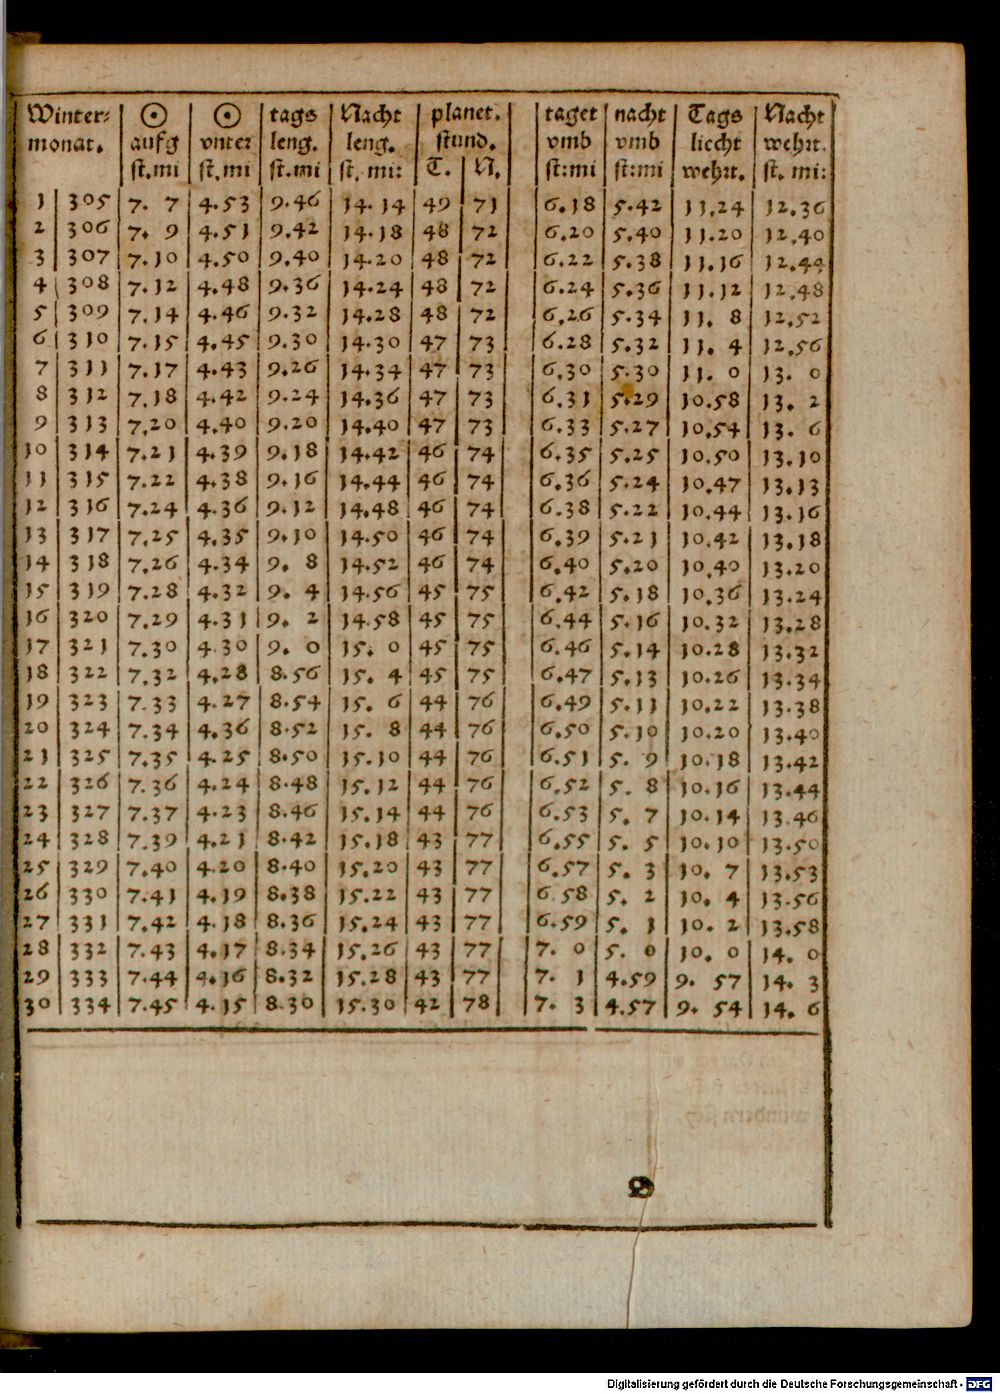 Winter⸗ ☉ ☉ tags Nacht planet. taget nacht Tags Nacht
monat. aufg vnter leng. leng. stund. vmb vmb liecht wehrt.
st.mi st.mi st.mi st. mi: T. N. st:mi st:mi wehrt. st. mi:
1 305 7. 7 4.53 9.46 14.14 49 71 6.18 5.42 11.24 12.36
2 306 7. 9 4.51 9.42 14.18 48 72 6.20 5.40 11.20 12.40
3 307 7.10 4.50 9.40 14.20 48 72 6.22 5.38 11.16 12.44
4 308 7.12 4.48 9.36 14.24 48 72 6.24 5.36 11.12 12.48
5 309 7.14 4.46 9.32 14.28 48 72 6.26 5.34 11. 8 12.52
6 310 7.15 4.45 9.30 14.30 47 73 6.28 5.32 11. 4 12.56
7 311 7.17 4.43 9.26 14.34 47 73 6.30 5.30 11. 0 13. 0
8 312 7.18 4.42 9.24 14.36 47 73 6.31 5.29 10.58 13. 2
9 313 7.20 4.40 9.20 14.40 47 73 6.33 5.27 10.54 13. 6
10 314 7.21 4.39 9.18 14.42 46 74 6.35 5.25 10.50 13.10
11 315 7.22 4.38 9.16 14.44 46 74 6.36 5.24 10.47 13.13
12 316 7.24 4.36 9.12 14.48 46 74 6.38 5.22 10.44 13.16
13 317 7.25 4.35 9.10 14.50 46 74 6.39 5.21 10.42 13.18
14 318 7.26 4.34 9. 8 14.52 46 74 6.40 5.20 10.40 13.20
15 319 7.28 4.32 9. 4 14.56 45 75 6.42 5.18 10.36 13.24
16 320 7.29 4.31 9. 2 14.58 45 75 6.44 5.16 10.32 13.28
17 321 7.30 4.30 9. 0 15. 0 45 75 6.46 5.14 10.28 13.32
18 322 7.32 4.28 8.56 15. 4 45 75 6.47 5.13 10.26 13.34
19 323 7.33 4.27 8.54 15. 6 44 76 6.49 5.11 10.22 13.38
20 324 7.34 4.36 8.52 15. 8 44 76 6.50 5.10 10.20 13.40
21 325 7.35 4.25 8.50 15.10 44 76 6.51 5. 9 10.18 13.42
22 326 7.36 4.24 8.48 15.12 44 76 6.52 5. 8 10.16 13.44
23 327 7.37 4.23 8.46 15.14 44 76 6.53 5. 7 10.14 13.46
24 328 7.39 4.21 8.42 15.18 43 77 6.55 5. 5 10.10 13.50
25 329 7.40 4.20 8.40 15.20 43 77 6.57 5. 3 10. 7 13.53
26 330 7.41 4.19 8.38 15.22 43 77 6 58 5. 2 10. 4 13.56
27 331 7.42 4.18 8.36 15.24 43 77 6.59 5. 1 10. 2 13.58
28 332 7.43 4.17 8.34 15.26 43 77 7. 0 5. 0 10. 0 14. 0
29 333 7.44 4.16 8.32 15.28 43 77 7. 1 4.59 9. 57 14. 3
30 334 7.45 4.15 8.30 15.30 42 78 7. 3 4.57 9. 54 14. 6
Digitalisierung gefördert durch die Deutsche Forschungsgemeinschaft - DFG